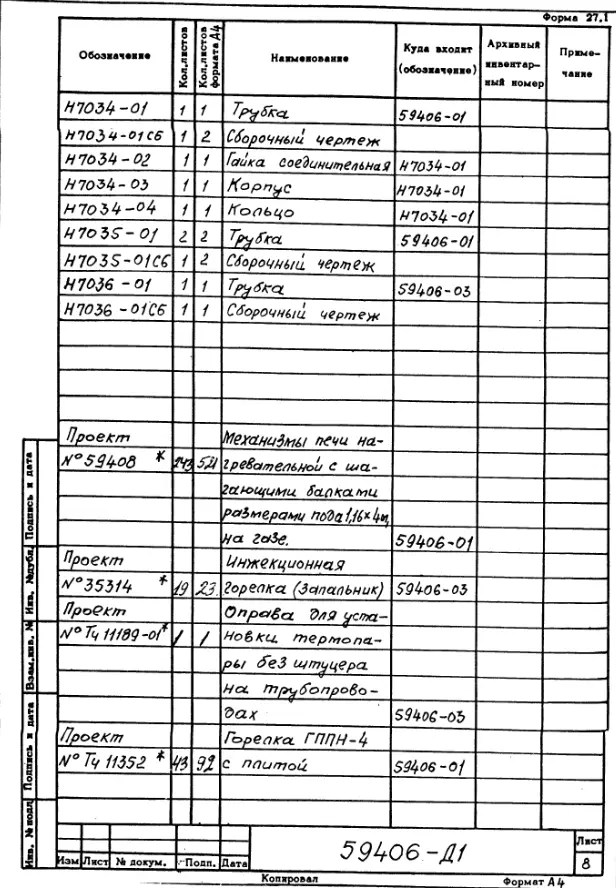 Форма 27.1
Обозначение Кол.листов Кол.листов формата А4 Наименование Куда входит (обозначение) Архивный инвентар-ный номер Приме-чание
Н7034-01 1 1 Трубка 59406-01
Н7034-01СБ 1 2 Сборочный чертеж
Н7034-02 1 1 Гайка соединительная Н7034-01
Н7034-03 1 1 Корпус Н7034-01
Н7034-04 1 1 Кольцо Н7034-01
Н7035-01 2 2 Трубка 59406-01
Н7035-01СБ 1 2 Сборочный чертеж
Н7036-01 1 1 Трубка 59406-03
Н7036-01СБ 1 1 Сборочный чертеж
Проект Механизмы печи на-
№59408 * 243 521 гревательной с ша-
гающими балками
размерами пода 1,16×4м,
на газе. 59406-01
Проект Инжекционная
№35314 * 19 23 горелка (Запальник) 59406-03
Проект Оправа для уста-
№ТЧ11189-01* 1 1 новки термопа-
ры без штуцера
на трубопрово-
дах 59406-03
Проект Горелка ГППН-4
№ТЧ11352 * 43 92 с плитой 59406-01
Подпись и дата
Инв. №дубл.
Взам.инв. №
Подпись и дата
Инв. №подл.
Изм Лист № докум. Подп. Дата
59406-Д1
Лист
8
Копировал Формат А4